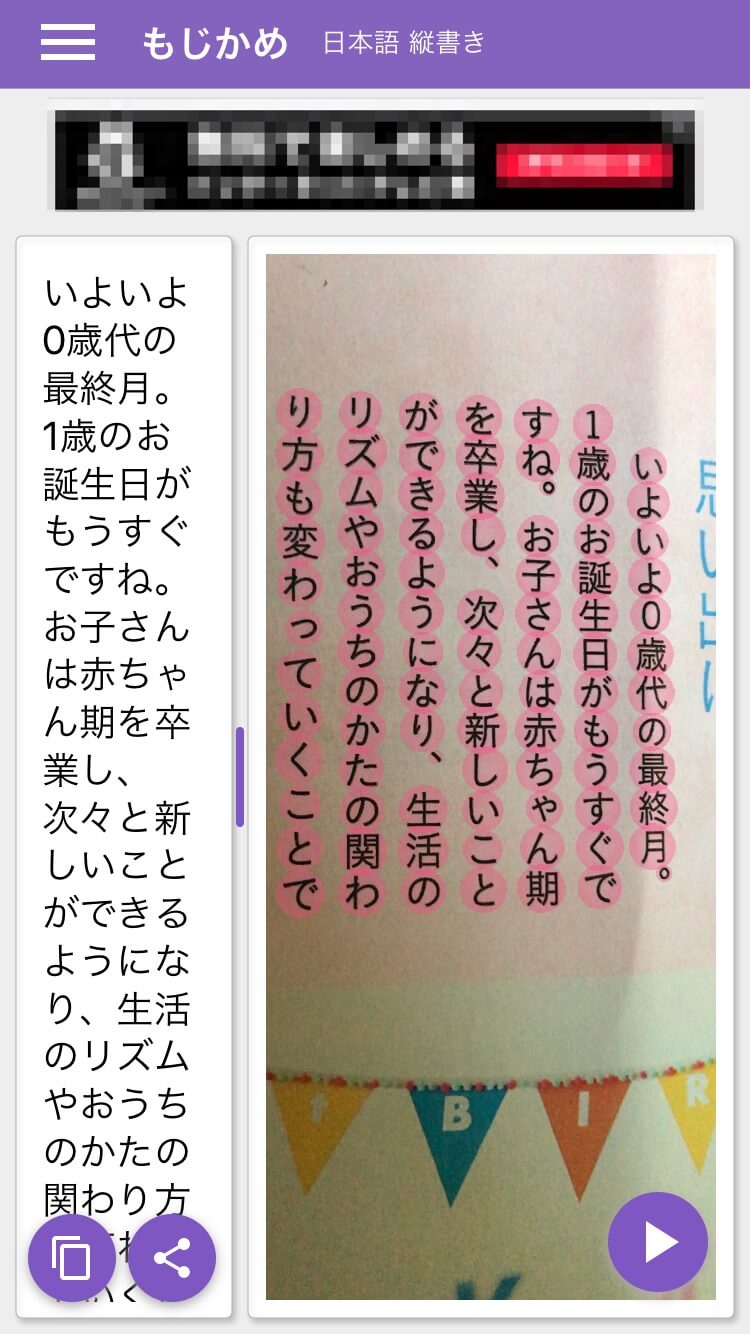 もじかめ 日本語 縦書き
いよいよ
0歳代の
最終月。
1歳のお
誕生日が
もうすぐ
ですね。
お子さん
は赤ちゃ
ん期を卒
業し、
次々と新
しいこと
ができる
ようにな
り、生活
のリズム
やおうち
のかたの
関わり方
思い出に
いよいよ0歳代の最終月。
1歳のお誕生日がもうすぐで
すね。お子さんは赤ちゃん期
を卒業し、次々と新しいこと
ができるようになり、生活の
リズムやおうちのかたの関わ
り方も変わっていくことで
t B I R